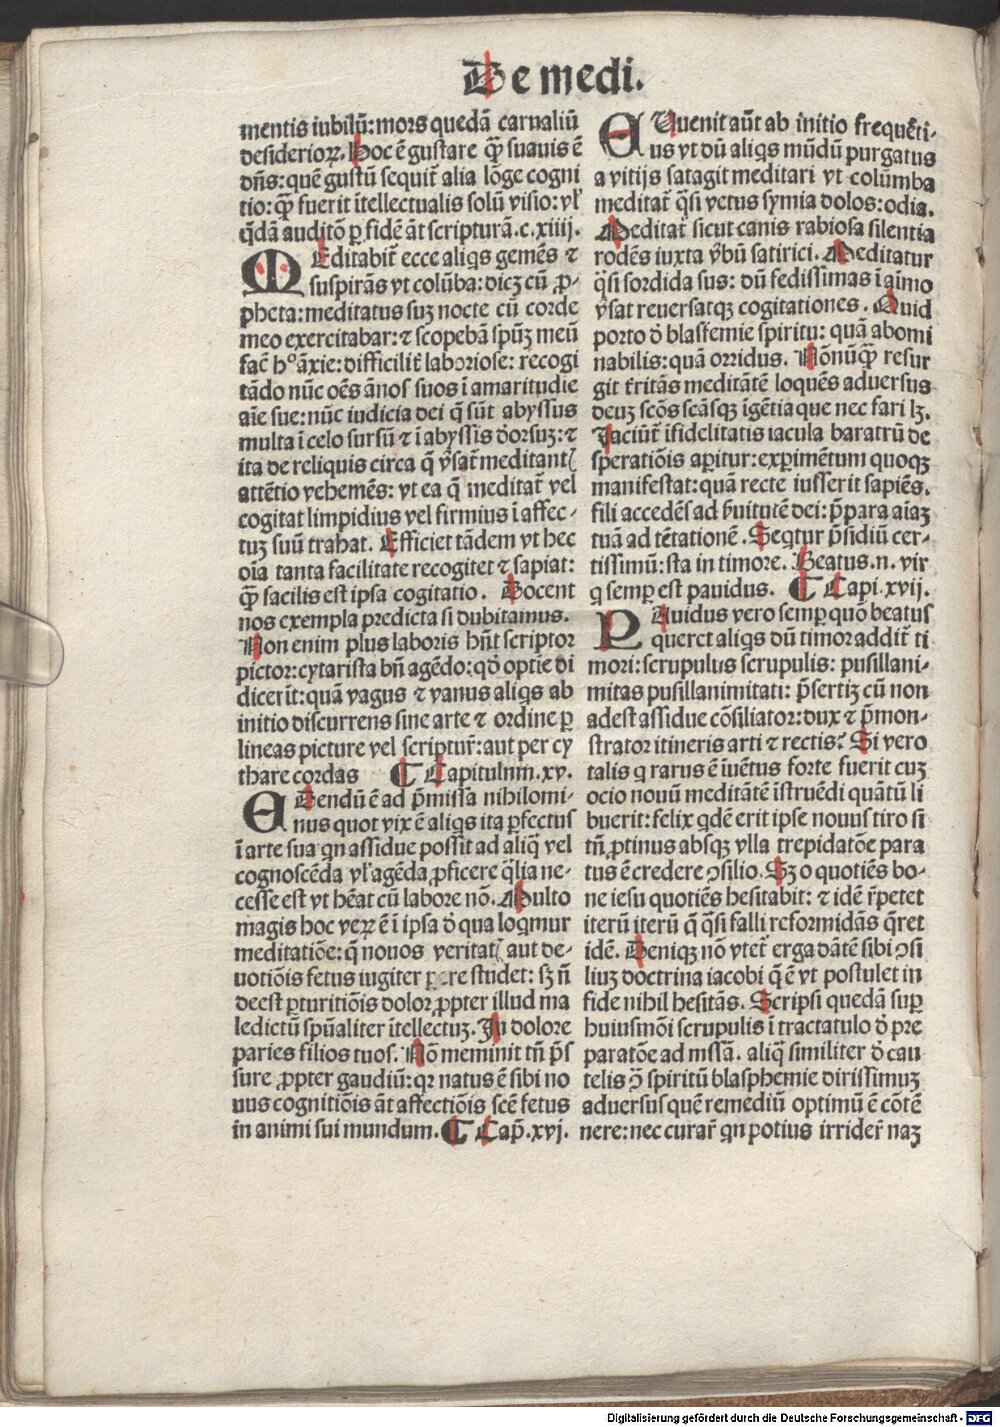 De medi.
mentis iubilũ: mors quedã carnaliũ
desiderioꝝ. Hoc ẽ gustare ꝙ̃ suauis ẽ
dñs: quẽ gustũ sequit᷑ alia lõge cogni
tio: ꝙ̃ fuerit ĩtellectualis solũ visio: vł
q̃dã auditõ ꝑ fidẽ ãt scripturã. c. xiiij.
MEditabit᷑ ecce aliqs gemẽs ⁊
suspirãs vt colũba: dicꝫ cũ ꝓ-
pheta: meditatus suꝫ nocte cũ corde
meo exercitabar: ⁊ scopebã spũꝫ meũ
fac̃ h° ãxie: difficilit᷑ laboriose: recogi
tãdo nũc oẽs ãnos suos ĩ amaritudie
aĩe sue: nũc iudicia dei q̃ sũt abyssus
multa ĩ celo sursũ ⁊ ĩ abyssis ðorsuꝫ: ⁊
ita de reliquis circa q̃ ṽsãt meditantꝭ
attẽtio vehemẽs: vt ea q̃ meditat᷑ vel
cogitat limpidius vel firmius ĩ affec-
tuꝫ suũ trahat. Efficiet tãdem vt hec
oĩa tanta facilitate recogitet ⁊ sapiat:
ꝙ̃ facilis est ipsa cogitatio. Docent
nos exempla predicta si dubitamus.
Non enim plus laboris hñt scriptor
pictor: cytarista bñ agẽdo: qð optĩe di
dicerĩt: quã vagus ⁊ vanus aliqs ab
initio discurrens sine arte ⁊ ordine ꝑ
lineas picture vel scriptur᷑: aut per cy
thare cordas ¶ Capitulum. xv.
ADdendũ ẽ ad p̃missa nihilomi-
nus quot vix ẽ aliqs ita ꝑfectus
ĩ arte sua qn assidue possit ad aliq̃ vel
cognoscẽda vł agẽda ꝓficere q̃lia ne-
cesse est vt hẽat cũ labore nõ. Multo
magis hoc veꝝ ẽ ĩ ipsa ð qua loqmur
meditatiõe: q̃ nouos veritatꝭ aut de-
uotiõis fetus iugiter studet: sꝫ ñ
deest ꝑturitiõis dolor ꝓpter illud ma
ledictũ spũaliter ĩtellectuꝫ. In dolore
paries filios tuos. Nõ meminit tñ p̃s
sure ꝓpter gaudiũ: qꝛ natus ẽ sibi no
uus cognitiõis ãt affectiõis scẽ fetus
in animi sui mundum. ¶ Cap̃. xvj.
EUuenit aũt ab initio frequẽti-
us vt dũ aliqs mũdũ purgatus
a vitijs satagit meditari vt colũmba
meditat᷑ q̃si vetus symia dolos: odia.
Meditat᷑ sicut canis rabiosa silentia
rodẽs iuxta ṽbũ satirici. Meditatur
q̃si sordida sus: dũ fedissimas ĩ aĩmo
ṽsat reuersatqꝫ cogitationes. Quid
porro ð blasfemie spiritu: quã abomi
nabilis: quã orridus. Nõnũꝙ̃ resur
git ĩritãs meditãtẽ loquẽs aduersus
deuꝫ scõs scãsqꝫ ĩgẽtia que nec fari lꝫ.
Jaciũt᷑ ĩfidelitatis iacula baratrũ de
speratiõis aꝑitur: exꝑimẽtum quoqꝫ
manifestat: quã recte iusserit sapiẽs.
fili accedẽs ad s̃uitutẽ dei: p̃para aĩaꝫ
tuã ad tẽtationẽ. Seqtur p̃sidiũ cer-
tissimũ: sta in timore. Beatus. n. vir
q semꝑ est pauidus. ¶ Capi. xvij.
PAuidus vero semꝑ quõ beatus
queret aliqs dũ timor addit᷑ ti
mori: scrupulus scrupulis: pusillani-
mitas pusillanimitati: p̃sertiꝫ cũ non
adest assidue cõsiliator: dux ⁊ p̃mon-
strator itineris arti ⁊ rectis? Si vero
talis q rarus ẽ ĩuẽtus forte fuerit cuꝫ
ocio nouũ meditãtẽ ĩstruẽdi quãtũ li
buerit: felix qdẽ erit ipse nouus tiro si
tñ ꝓtinus absqꝫ vlla trepidatõe para
tus ẽ credere ↄsilio. Sꝫ o quotiẽs bo-
ne iesu quotiẽs hesitabit: ⁊ idẽ r̃petet
iterũ iterũ q q̃si falli reformidãs q̃ret
idẽ. Deniqꝫ nõ vtet᷑ erga dãtẽ sibi ↄsi
liuꝫ doctrina iacobi q̃ ẽ vt postulet in
fide nihil hesitãs. Scripsi quedã suꝑ
huiusmõi scrupulis ĩ tractatulo ð pre
paratõe ad missã. aliq̃ similiter ð cau
telis ↄ̃ spiritũ blasphemie dirissimuꝫ
aduersus quẽ remediũ optimũ ẽ cõtẽ
nere: nec curar᷑ qn potius irrider᷑ naꝫ
Digitalisierung gefördert durch die Deutsche Forschungsgemeinschaft - DFG